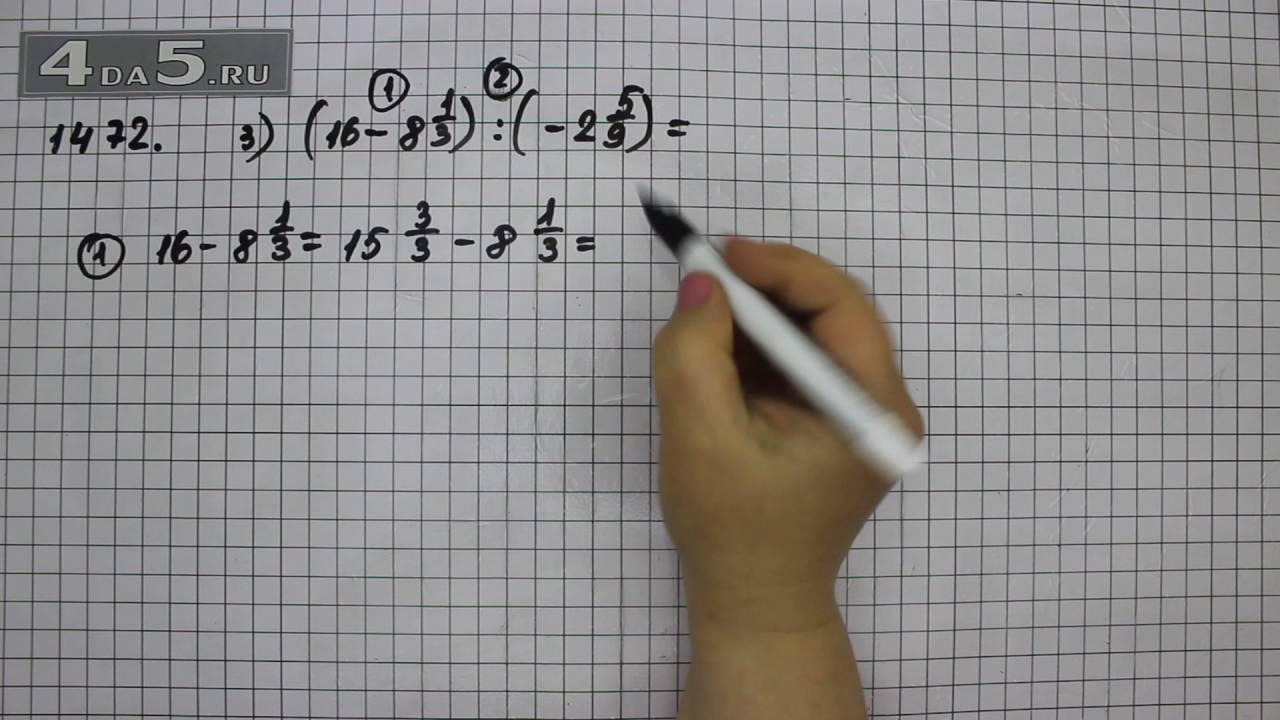 4DA5.RU
① ②
1472. 3) (16 - 8 1/3) : (- 2 5/9) =
① 16 - 8 1/3 = 15 3/3 - 8 1/3 =